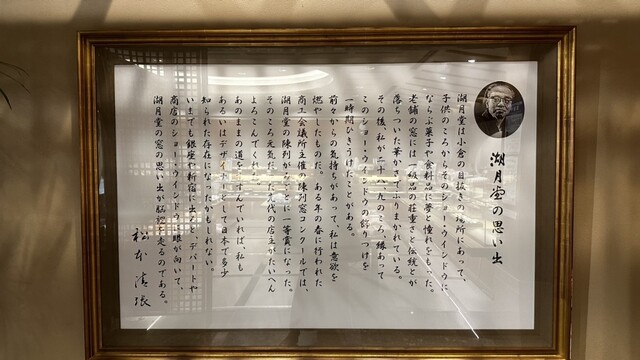 湖月堂の思い出
湖月堂は小倉の目抜きの場所にあって、
子供のころからそのショー・ウインドウに
ならぶ菓子や食料品に夢と憧れをもった。
老舗の窓には一級品の荘重さと伝統とが
落ちついた華かさでふりまかれている。
その後、私が二十八、九のころ、縁あって
このショー・ウインドウの飾りつけを
一時間ひきうけたことがある。
前々からの気持ちがあって、私は意欲を
燃やしたものだ。ある年の春に行われた
商工会議所主催の陳列窓コンクールでは、
湖月堂の陳列がみごとに一等賞になった。
そのころ元気だった先代の店主がたいへん
よろこんでくれた。
あのままの道をすすんでいれば、私も
あるいはデザイナーとして日本で多少
知られた存在になったかもしれない。
いまでも銀座や新宿に出ると、デパートや
商店のショー・ウインドウに眼が向いて、
湖月堂の窓の思い出が脳裡を走るのである。
松本清張